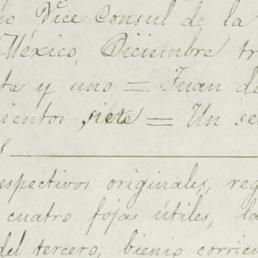 Vice Consul de la
México, Diciembre tr
te y uno = Juan de
cientos, siete = Un se
s
espectivos originales, reg
cuatro fojas útiles, la
del tercero, bienio corrien